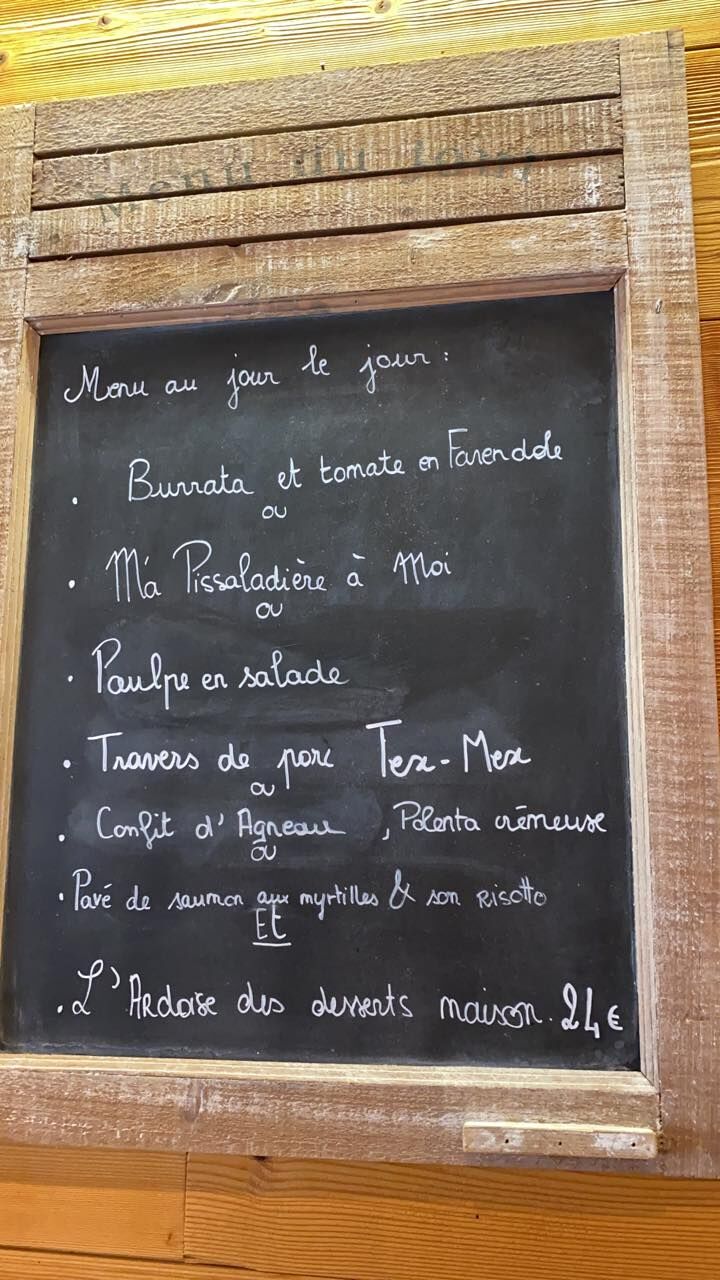 Menu du jour
Menu au jour le jour :
. Burrata et tomate en Farendole
ou
. Ma Pissaladière à Moi
ou
. Poulpe en salade
. Travers de porc Tex-Mex
ou
. Confit d'Agneau , Polenta crémeuse
ou
. Pavé de saumon aux myrtilles & son RISOTTO
Et
. L'Ardoise des desserts maison. 24€